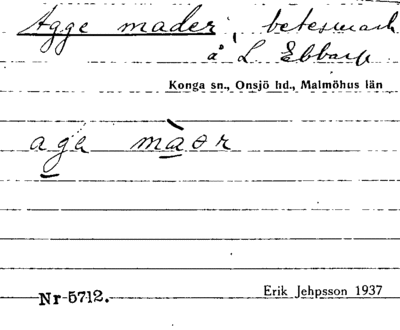 Agge mader, betesmark
å L Ebbarp
Konga sn., Onsjö hd., Malmöhus län
Nr 5712.
Erik Jehpsson 1937